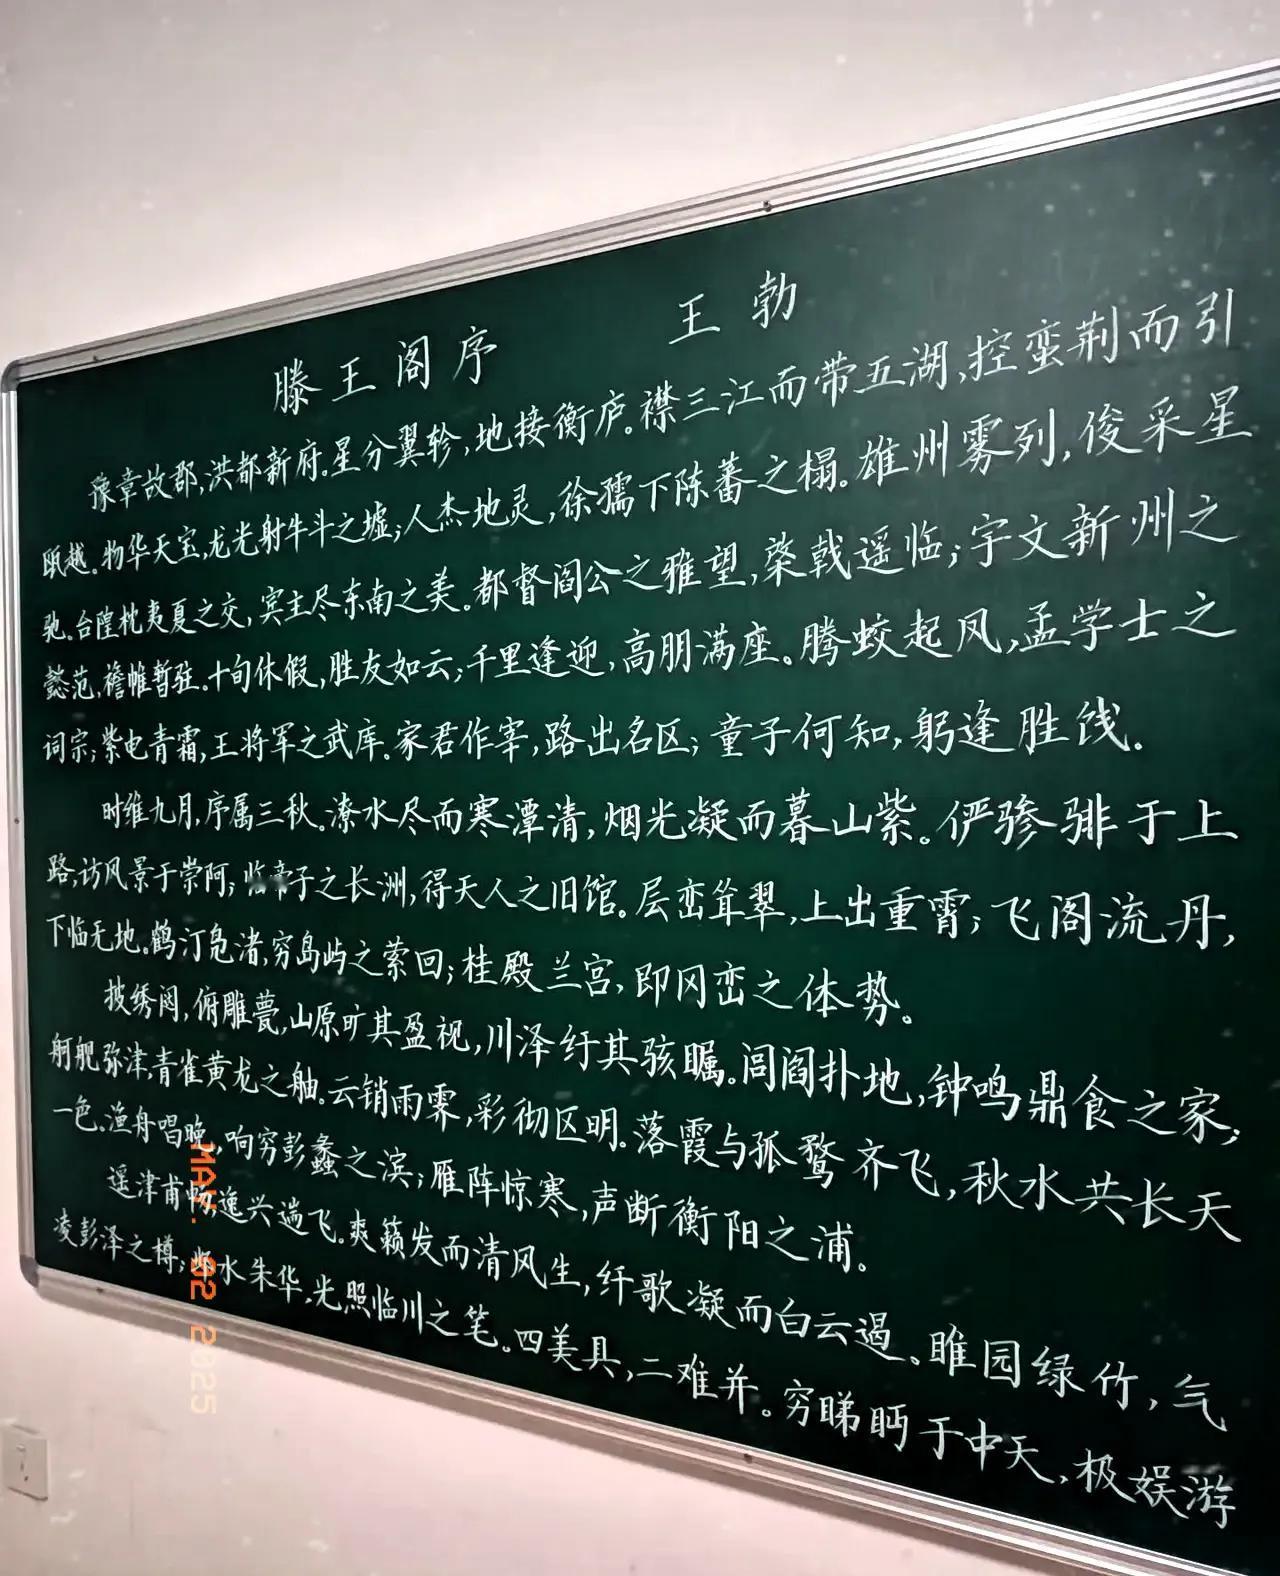 滕王阁序 王勃
豫章故郡,洪都新府。星分翼轸,地接衡庐。襟三江而带五湖,控蛮荆而引
瓯越。物华天宝,龙光射牛斗之墟;人杰地灵,徐孺下陈蕃之榻。雄州雾列,俊采星
驰。台隍枕夷夏之交,宾主尽东南之美。都督阎公之雅望,棨戟遥临;宇文新州之
懿范,襜帷暂驻。十旬休假,胜友如云;千里逢迎,高朋满座。腾蛟起凤,孟学士之
词宗;紫电青霜,王将军之武库。家君作宰,路出名区;童子何知,躬逢胜饯。
时维九月,序属三秋。潦水尽而寒潭清,烟光凝而暮山紫。俨骖騑于上
路,访风景于崇阿;临帝子之长洲,得天人之旧馆。层峦耸翠,上出重霄;飞阁流丹,
下临无地。鹤汀凫渚,穷岛屿之萦回;桂殿兰宫,即冈峦之体势。
披绣闼,俯雕甍,山原旷其盈视,川泽纡其骇瞩。闾阎扑地,钟鸣鼎食之家;
舸舰弥津,青雀黄龙之舳。云销雨霁,彩彻区明。落霞与孤鹜齐飞,秋水共长天
一色。渔舟唱晚,响穷彭蠡之滨;雁阵惊寒,声断衡阳之浦。
遥津甫畅,逸兴遄飞。爽籁发而清风生,纤歌凝而白云遏。睢园绿竹,气
凌彭泽之樽;邺水朱华,光照临川之笔。四美具,二难并。穷睇眄于中天,极娱游
MAY. 02 2025